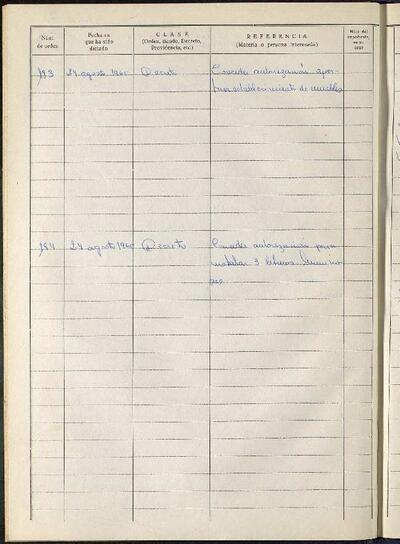 Núm.
de orden
Fecha en
que ha sido
dictado
CLASE
(Orden, Bando, Decreto,
Providencia, etc.)
REFERENCIA
(Materia o persona interesada)
Núm. del
expediente,
en su
caso
183 24 agosto 1960 Decreto Conceder autorización aper-
tura establecimiento de muebles
184 24 agosto 1960 Decreto Conceder autorización para
instalar 3 letreros lumino
sos